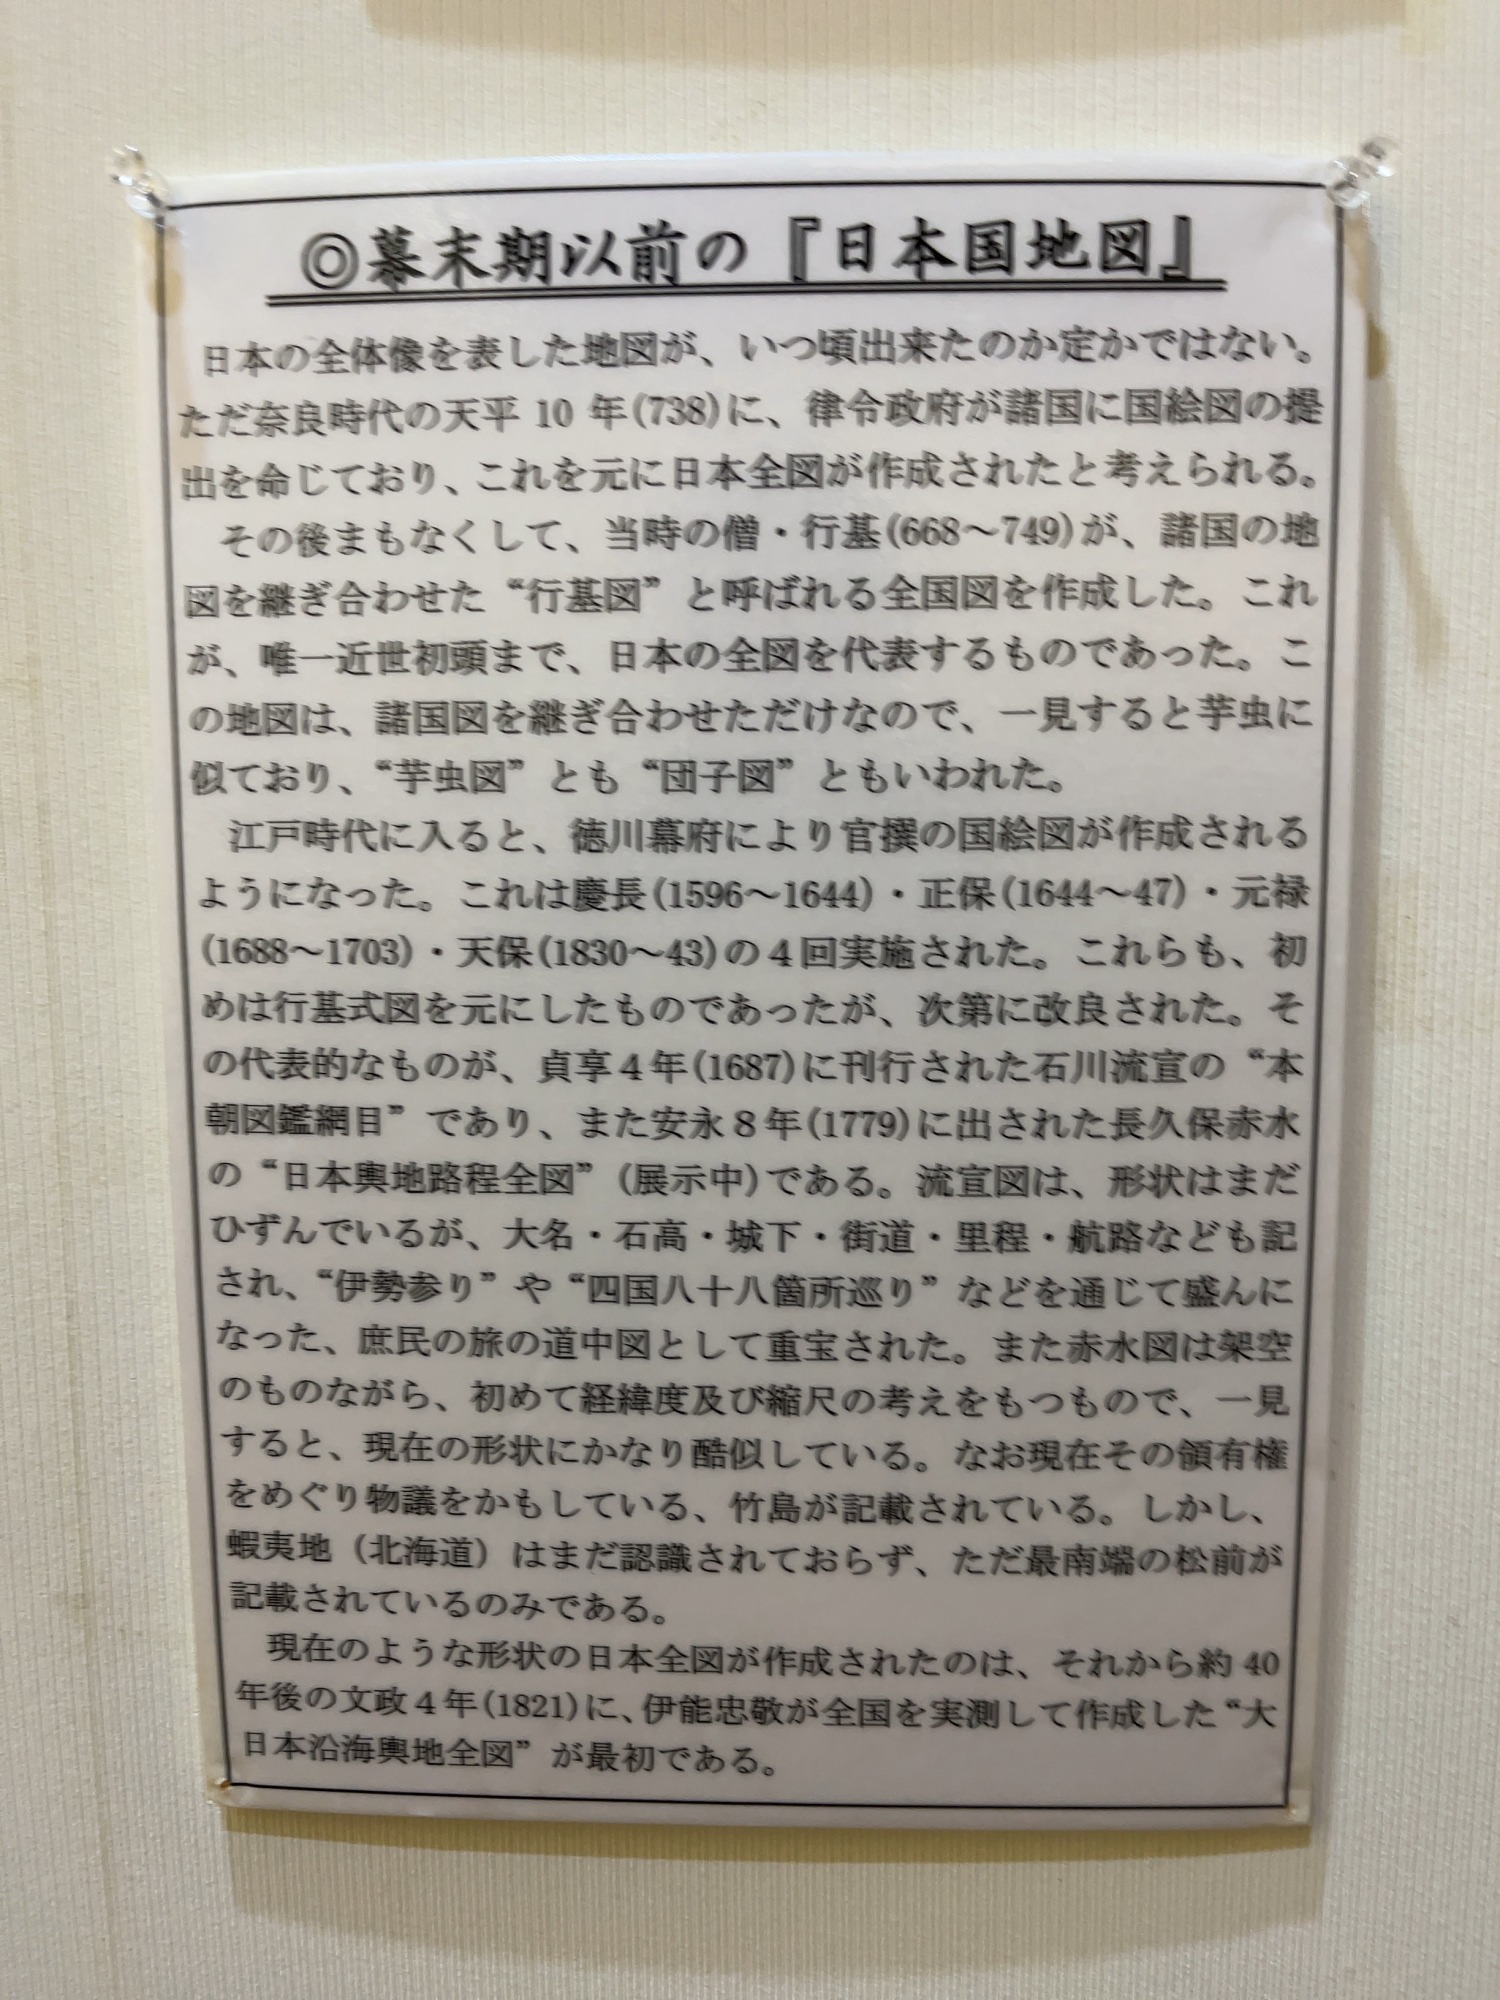 ◎幕末期以前の『日本国地図』
日本の全体像を表した地図が、いつ頃出来たのか定かではない。
ただ奈良時代の天平 10 年(738)に、律令政府が諸国に国絵図の提
出を命じており、これを元に日本全図が作成されたと考えられる。
その後まもなくして、当時の僧・行基(668～749)が、諸国の地
図を継ぎ合わせた“行基図”と呼ばれる全国図を作成した。これ
が、唯一近世初頭まで、日本の全図を代表するものであった。こ
の地図は、諸国図を継ぎ合わせただけなので、一見すると芋虫に
似ており、“芋虫図”とも“団子図”ともいわれた。
江戸時代に入ると、徳川幕府により官撰の国絵図が作成される
ようになった。これは慶長(1596～1644)・正保(1644～47)・元禄
(1688～1703)・天保(1830～43)の４回実施された。これらも、初
めは行基式図を元にしたものであったが、次第に改良された。そ
の代表的なものが、貞享４年(1687)に刊行された石川流宣の“本
朝図鑑綱目”であり、また安永８年(1779)に出された長久保赤水
の“日本輿地路程全図”(展示中)である。流宣図は、形状はまだ
ひずんでいるが、大名・石高・城下・街道・里程・航路なども記
され、“伊勢参り”や“四国八十八箇所巡り”などを通じて盛んに
なった、庶民の旅の道中図として重宝された。また赤水図は架空
のものながら、初めて経緯度及び縮尺の考えをもつもので、一見
すると、現在の形状にかなり酷似している。なお現在その領有権
をめぐり物議をかもしている、竹島が記載されている。しかし、
蝦夷地（北海道）はまだ認識されておらず、ただ最南端の松前が
記載されているのみである。
現在のような形状の日本全図が作成されたのは、それから約 40
年後の文政４年(1821)に、伊能忠敬が全国を実測して作成した“大
日本沿海輿地全図”が最初である。